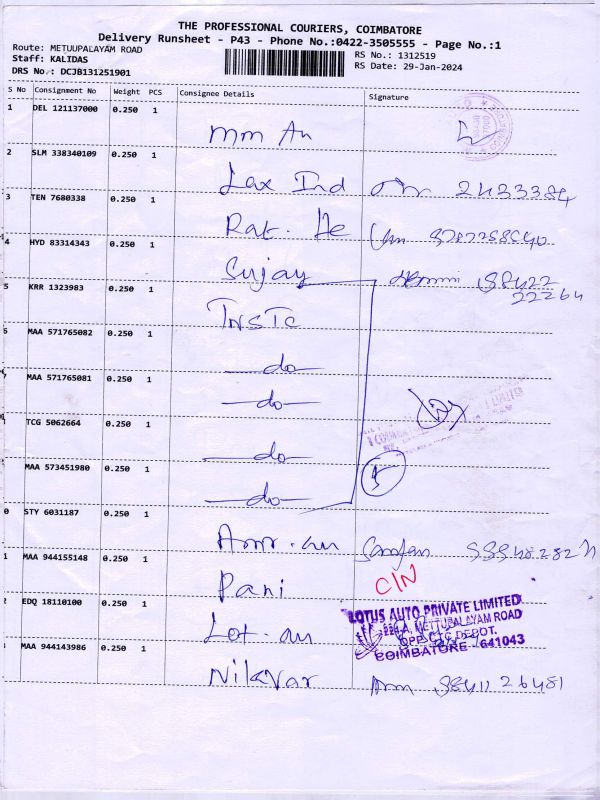 THE PROFESSIONAL COURIERS, COIMBATORE
Delivery Runsheet - P43 - Phone No.:0422-3505555 - Page No.:1
Route: METUUPALAYAM ROAD
Staff: KALIDAS
DRS No.: DCJB131251901
RS No.: 1312519
RS Date: 29-Jan-2024
S No Consignment No Weight PCS Consignee Details Signature
1 DEL 121137000 0.250 1
mm Au
2 SLM 338340109 0.250 1
Lax Ind 2433384
3 TEN 7680338 0.250 1
Rat. He
4 HYD 83314343 0.250 1
Sujay 98422
22264
5 KRR 1323983 0.250 1
TNSTC
6 MAA 571765082 0.250 1
do
7 MAA 571765081 0.250 1
do
TCG 5062664 0.250 1
do
MAA 573451980 0.250 1
do
5
0 STY 6031187 0.250 1
Amr. au
1 MAA 944155148 0.250 1
Pani C/N
2 EDQ 18110100 0.250 1
Lot. au
LOTUS AUTO PRIVATE LIMITED
METTUPALAYAM ROAD
OPP. CTC DEPOT.
COIMBATORE - 641043
MAA 944143986 0.250 1
Nilavar 98411 26481